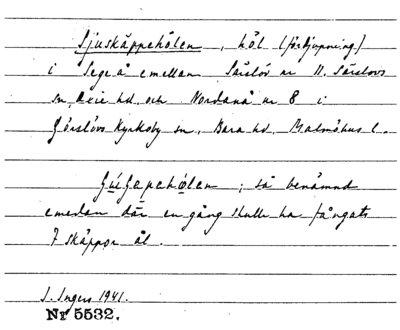 Sjuskäppehölen, höl (fördjupning)
i Sege å emellan Särslöv nr 11. Särslövs
sn, Oxie hd, och Nordanå nr 8 i
Görslövs Kyrkoby sn, Bara hd, Malmöhus l.
; så benämnd
emedan där en gång skulle ha fångats
7 skäppor ål.
S. Ingers 1941.
Nr 5532.